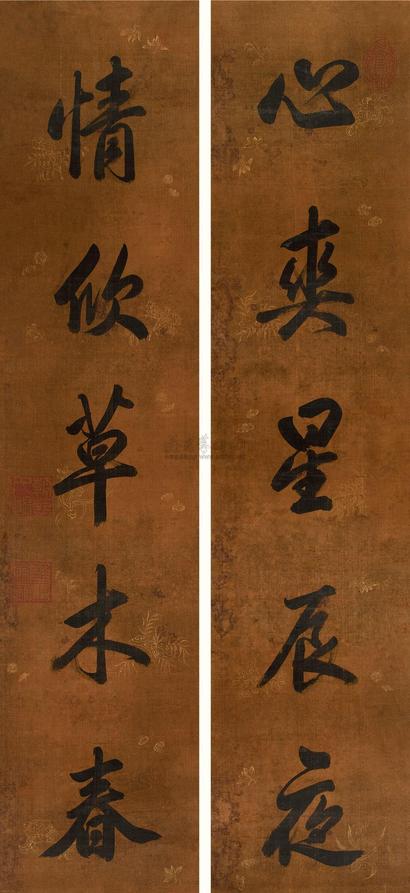 心爽星辰夜
情欣草木春